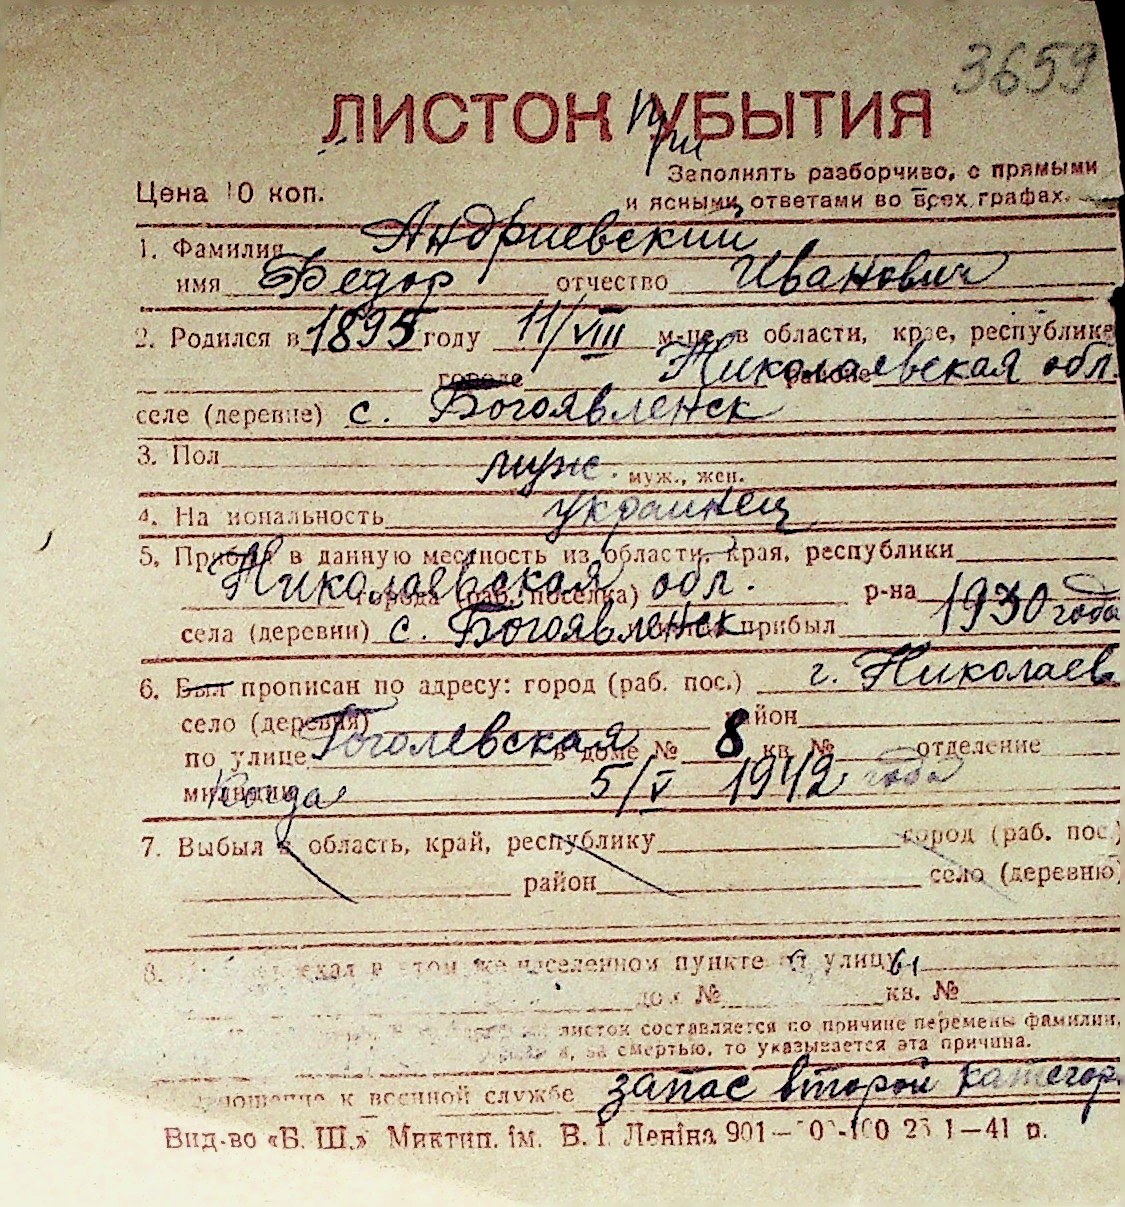 3659
ЛИСТОК УБЫТИЯ
при
Заполнять разборчиво, с прямыми
Цена 10 коп. и ясными ответами во всех графах.
1. Фамилия Андриевский
имя Федор отчество Иванович
2. Родился в 1895 году 11/VIII м-це, в области, крае, республике
городе районе Николаевская обл.
селе (деревне) с. Богоявленск
3. Пол муж. муж., жен.
4. Национальность украинец
5. Прибыл в данную местность из области, края, республики
Николаевская обл. города (раб. поселка) р-на
села (деревни) с. Богоявленск прибыл 1930 года
6. Был прописан по адресу: город (раб. пос.) г. Николаев
село (деревня) район
по улице Гоголевская в доме № 8 кв. № отделение
милиции Когда 5/V 1942 года
7. Выбыл в область, край, республику город (раб. пос.)
район село (деревню)
8. в том же населенном пункте улицу
дом № кв. №
листок составляется по причине перемены фамилии,
за смертью, то указывается эта причина.
к военной службе запас второй категор.
Вид-во «Б. Ш.» Миктип. ім. В. І. Леніна 901